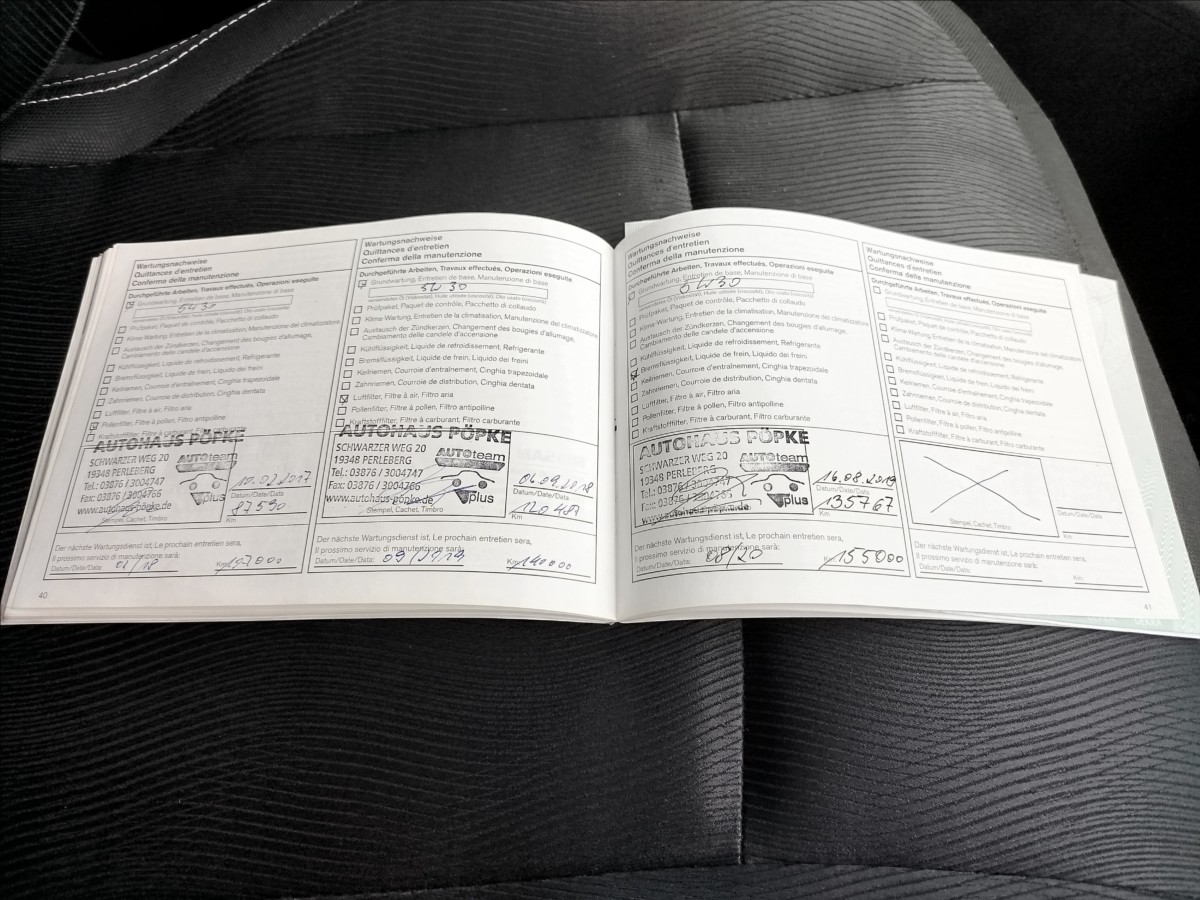 Wartungsnachweise
Quittances d'entretien
Conferma della manutenzione
Durchgeführte Arbeiten, Travaux effectués, Operazioni eseguite
Grundwartung, Entretien de base, Manutenzione di base
5W30
Prüfpaket, Paquet de contrôle, Pacchetto di collaudo
Klima-Wartung, Entretien de la climatisation, Manutenzione del climatizzatore
Austausch der Zündkerzen, Changement des bougies d'allumage,
Cambiamento delle candele d'accensione
Kühlflüssigkeit, Liquide de refroidissement, Refrigerante
Bremsflüssigkeit, Liquide de frein, Liquido dei freini
Keilriemen, Courroie d'entraînement, Cinghia trapezoidale
Zahnriemen, Courroie de distribution, Cinghia dentata
Luftfilter, Filtre à air, Filtro aria
Pollenfilter, Filtre à pollen, Filtro antipolline
AUTOHAUS PÖPKE
SCHWARZER WEG 20
19348 PERLEBERG
Tel.: 03876 / 3004747
Fax: 03876 / 3004766
www.autohaus-pöpke.de
AUTOteam
plus
Stempel, Cachet, Timbro
10.02.2017
Datum/Date/Data
87590
Km
Der nächste Wartungsdienst ist, Le prochain entretien sera,
Il prossimo servizio di manutenzione sarà:
Datum/Date/Data: 02/18
Km 107000
40
Wartungsnachweise
Quittances d'entretien
Conferma della manutenzione
Durchgeführte Arbeiten, Travaux effectués, Operazioni eseguite
Grundwartung, Entretien de base, Manutenzione di base
5W30
Prüfpaket, Paquet de contrôle, Pacchetto di collaudo
Klima-Wartung, Entretien de la climatisation, Manutenzione del climatizzatore
Austausch der Zündkerzen, Changement des bougies d'allumage,
Cambiamento delle candele d'accensione
Kühlflüssigkeit, Liquide de refroidissement, Refrigerante
Bremsflüssigkeit, Liquide de frein, Liquido dei freini
Keilriemen, Courroie d'entraînement, Cinghia trapezoidale
Zahnriemen, Courroie de distribution, Cinghia dentata
Luftfilter, Filtre à air, Filtro aria
Pollenfilter, Filtre à pollen, Filtro antipolline
Kraftstofffilter, Filtre à carburant, Filtro carburante
AUTOHAUS PÖPKE
SCHWARZER WEG 20
19348 PERLEBERG
Tel.: 03876 / 3004747
Fax: 03876 / 3004766
www.autohaus-pöpke.de
AUTOteam
plus
Stempel, Cachet, Timbro
Datum/Date/Data
120487
Km
Der nächste Wartungsdienst ist, Le prochain entretien sera,
Il prossimo servizio di manutenzione sarà:
Datum/Date/Data:
Km 140000
Wartungsnachweise
Quittances d'entretien
Conferma della manutenzione
Durchgeführte Arbeiten, Travaux effectués, Operazioni eseguite
Grundwartung, Entretien de base, Manutenzione di base
5W30
Prüfpaket, Paquet de contrôle, Pacchetto di collaudo
Klima-Wartung, Entretien de la climatisation, Manutenzione del climatizzatore
Austausch der Zündkerzen, Changement des bougies d'allumage,
Cambiamento delle candele d'accensione
Kühlflüssigkeit, Liquide de refroidissement, Refrigerante
Bremsflüssigkeit, Liquide de frein, Liquido dei freini
Keilriemen, Courroie d'entraînement, Cinghia trapezoidale
Zahnriemen, Courroie de distribution, Cinghia dentata
Luftfilter, Filtre à air, Filtro aria
Pollenfilter, Filtre à pollen, Filtro antipolline
Kraftstofffilter, Filtre à carburant, Filtro carburante
AUTOHAUS PÖPKE
SCHWARZER WEG 20
19348 PERLEBERG
Tel.: 03876 / 3004747
Fax: 03876 / 3004766
www.autohaus-pöpke.de
AUTOteam
plus
16.08.2019
Datum/Date/Data
135767
Km
Der nächste Wartungsdienst ist, Le prochain entretien sera,
Il prossimo servizio di manutenzione sarà:
Datum/Date/Data: 08/20
Km 155000
Wartungsnachweise
Quittances d'entretien
Conferma della manutenzione
Durchgeführte Arbeiten, Travaux effectués, Operazioni eseguite
Grundwartung, Entretien de base, Manutenzione di base
Prüfpaket, Paquet de contrôle, Pacchetto di collaudo
Klima-Wartung, Entretien de la climatisation, Manutenzione del climatizzatore
Austausch der Zündkerzen, Changement des bougies d'allumage,
Cambiamento delle candele d'accensione
Kühlflüssigkeit, Liquide de refroidissement, Refrigerante
Bremsflüssigkeit, Liquide de frein, Liquido dei freini
Keilriemen, Courroie d'entraînement, Cinghia trapezoidale
Zahnriemen, Courroie de distribution, Cinghia dentata
Luftfilter, Filtre à air, Filtro aria
Pollenfilter, Filtre à pollen, Filtro antipolline
Kraftstofffilter, Filtre à carburant, Filtro carburante
Stempel, Cachet, Timbro
Datum/Date/Data
Km
Der nächste Wartungsdienst ist, Le prochain entretien sera,
Il prossimo servizio di manutenzione sarà:
Datum/Date/Data:
Km
41